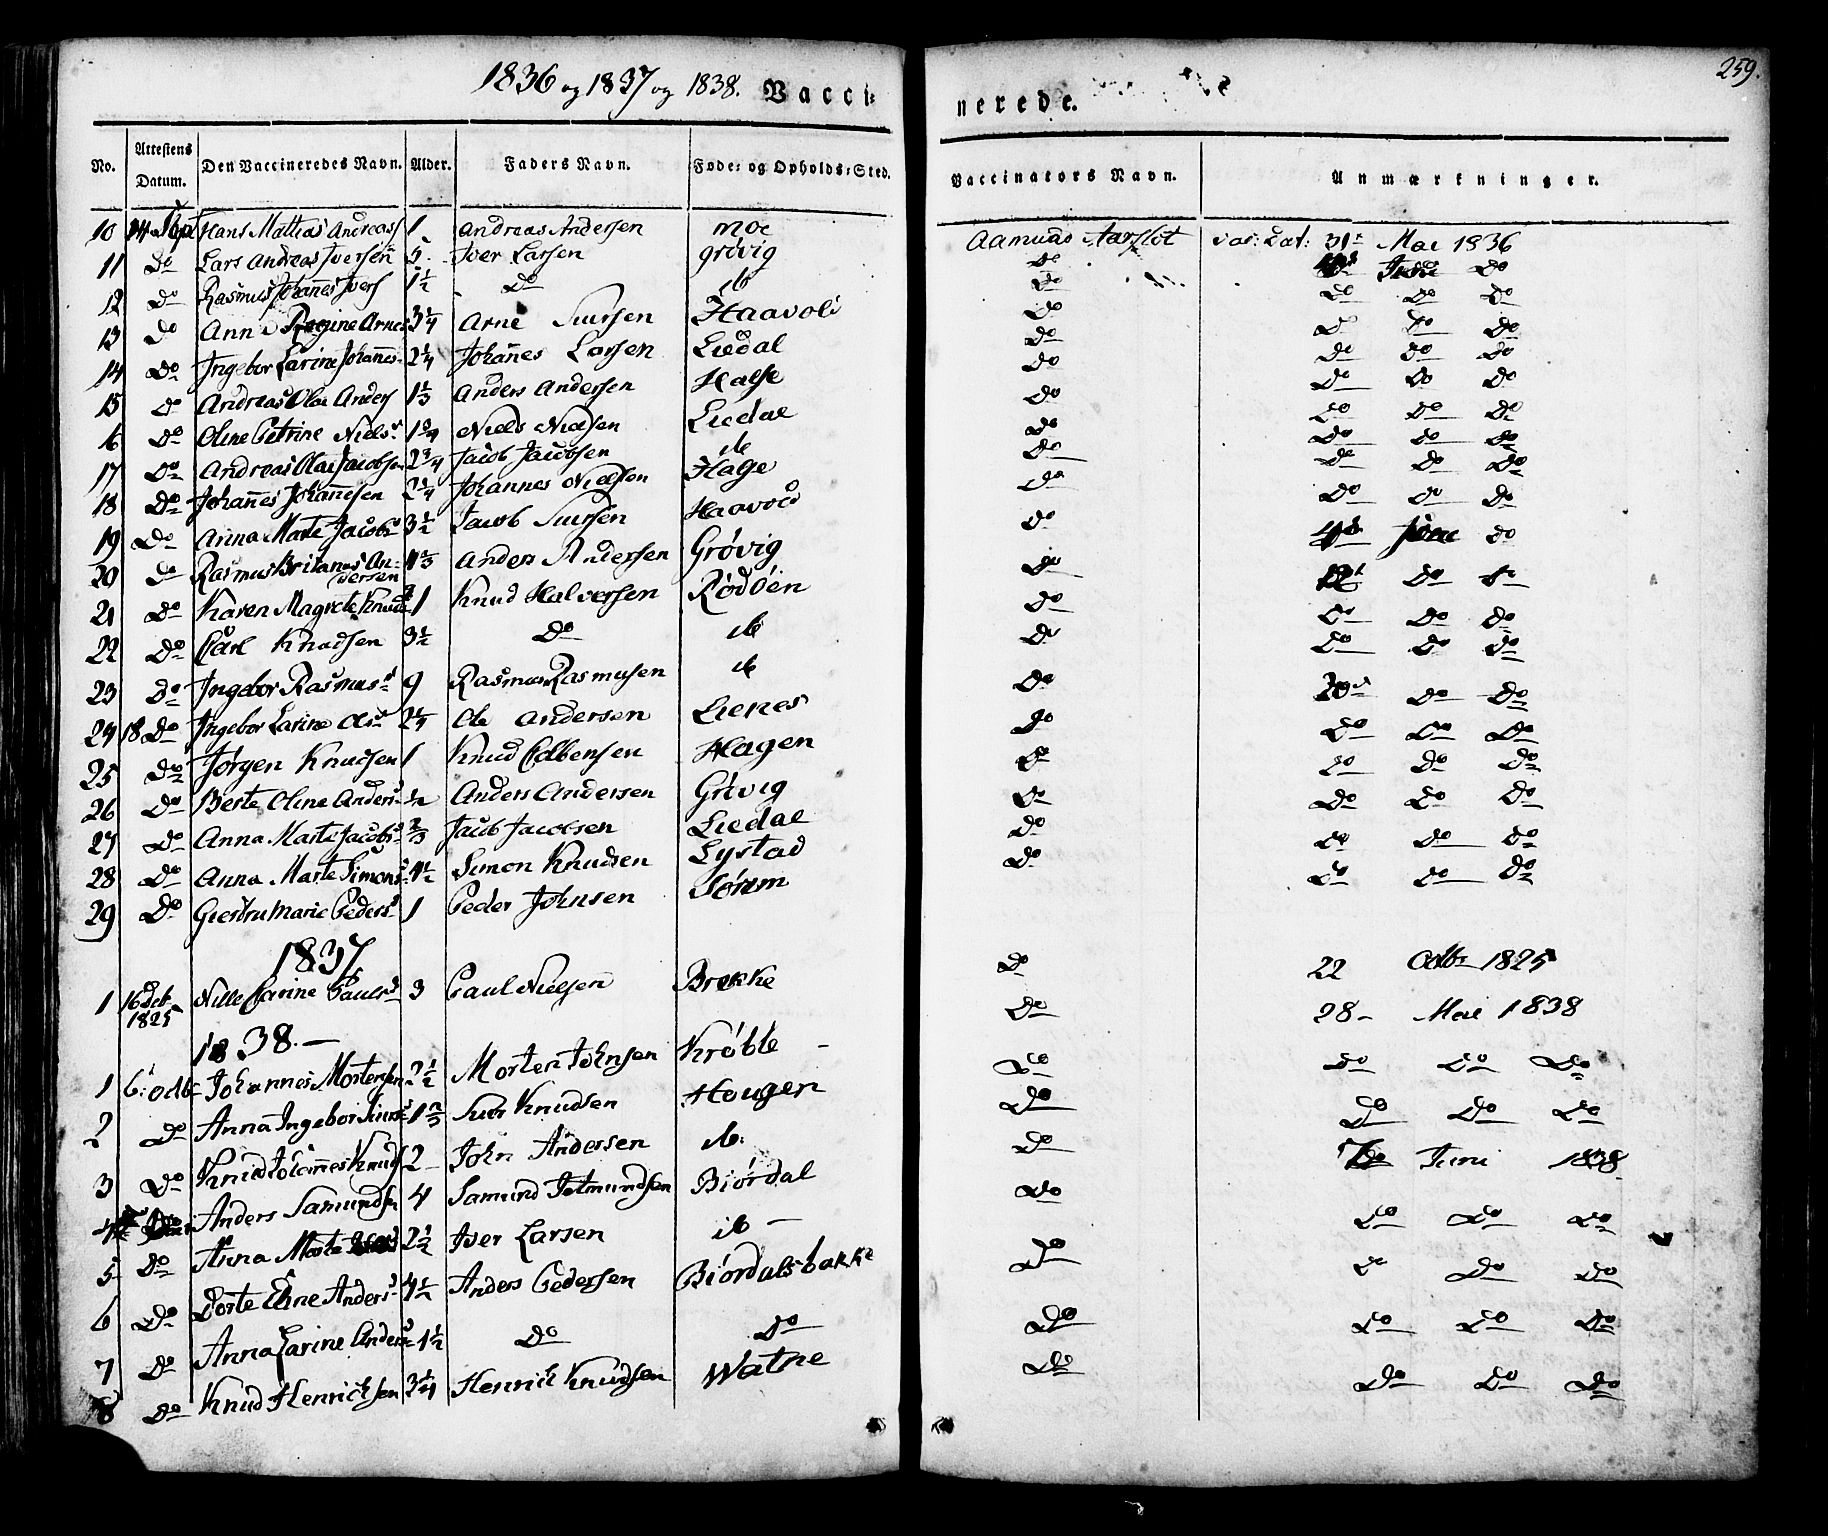 1836 og 1837 og 1838. Vacci- nerede. 259.
No. Attestens Datum. Den Vaccineredes Navn. Alder. Faders Navn. Føde- og Opholds-Sted. Vaccinators Navn. Anmærkninger.
10 14 Sept Hans Mathias Andreass 1 Andreas Andersen Moe Aamund Aarflot vac: Dat: 31te Mai 1836
11 Do Lars Andreas Iversen 5 Iver Larsen Grövig Do Do
12 Do Rasmus Johannes Ivers 1½ Do ib Do Do Do Do
13 Do Anne Regine Arnes 3¼ Arne Siursen Haavold Do Do Do Do
14 Do Ingebor Larine Johannes 2¼ Johannes Larsen Liedal Do Do Do Do
15 Do Andreas Olai Anders 1⅓ Anders Andersen Halse Do Do Do Do
16 Do Oline Petrine Nielsd Niels Nielsen Liedal Do Do Do Do
17 Do Andreas Olai Jacobsen 2¾ Jacob Jacobsen ib Do Do Do Do
18 Do Johannes Johannesen 2¼ Johannes Nielsen Hage Do Do Do Do
19 Do Anna Marte Jacobsd 3½ Jacob Siursen Haavold Do Do Do Do
20 Do Rasmus Britanus An-
dersen Anders Andersen Grövig Do Do
21 Do Karen Magrete Knudsd 1 Knud Halversen Röddöen Do Do
22 Do Carl Knudsen 3½ Do ib Do Do Do Do
23 Do Ingebor Rasmusd 9 Rasmus Rasmusen ib Do Do Do Do
24 18 Do Ingebor Larine Olsd 2¼ Ole Andersen Lienes Do Do Do
25 Do Jörgen Knudsen 1 Knud Colbensen Hagen Do Do Do Do
26 Do Berte Oline Andersd ½ Anders Andersen Grövig Do Do Do Do
27 Do Anna Marte Jacobsd ⅔ Jacob Jacobsen Liedal Do Do Do Do
28 Do Anna Marte Simonsd 4½ Simon Knudsen Lystad Do Do Do Do
29 Do Giertru Marie Pedersd 1 Peder Johnsen Sörem Do Do Do Do
1837
1 16 Octb 1825 Nille Carine Paulsd 3 Paul Nielsen Brekke Do 22 Octb 1825
1838.
1 6: Octb Johannes Mortensen 2½ Morten Johnsen Kröble Do 28 Mai 1838
2 Do Anna Ingebor Siursd 1⅔ Siur Knudsen Hougen Do Do Do Do
3 Do Knud Johannes Knuds 2 John Andersen ib: Do Do Do Do
4 Anders Samundsen 4 Samund Jetmundsen Biördal Do Juni 1838
5 Do Anna Marte 2½ Iver Larsen ib Do Do Do Do
6 Do Dorte Eline Andersd 4½ Anders Pedersen Biördalsbakke Do Do Do Do
7 Do Anna Larine Andersd 1½ Do Do Do Do Do Do
8 Do Knud Henrichsen 3¼ Henrich Knudsen Watne Do Do Do Do